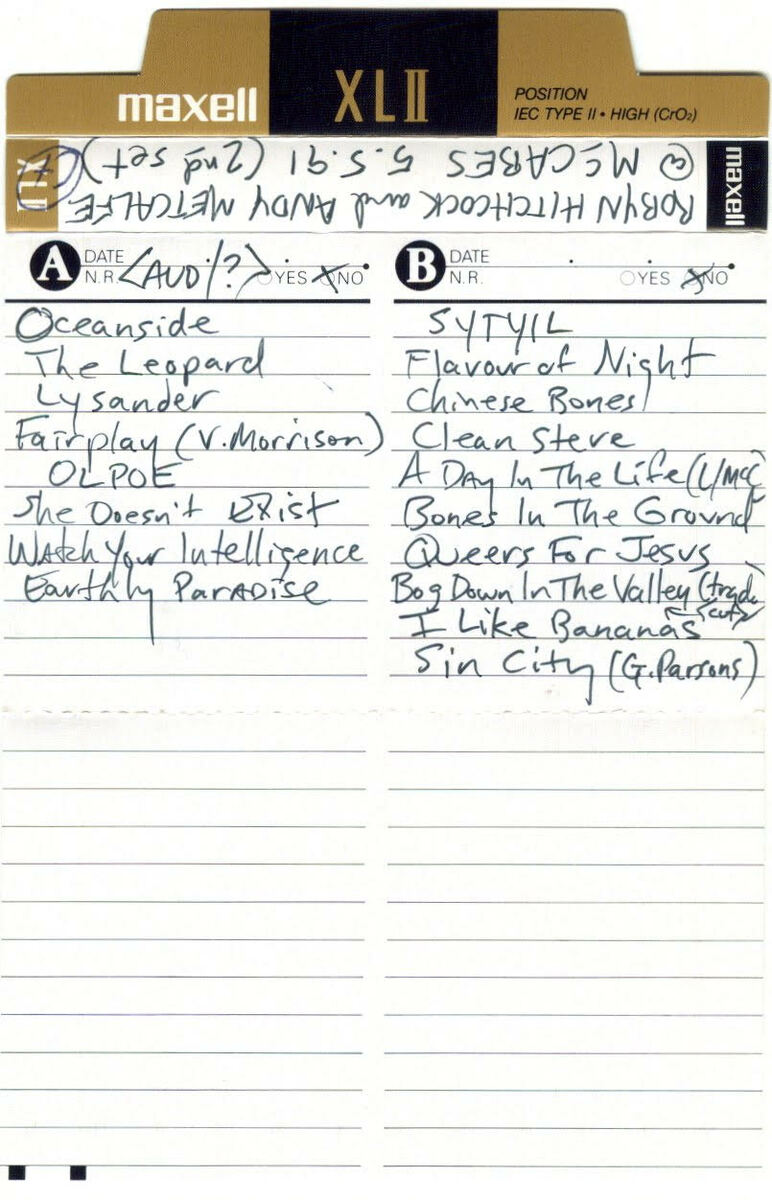 maxell XLII POSITION
IEC TYPE II • HIGH (CrO2)
ROBYN HITCHCOCK and ANDY METCALFE
@ McCABES 5.5.91 (2nd set)
XLII
maxell
A DATE
N.R. <AUD/?> YES NO
Oceanside
The Leopard
Lysander
Fairplay (V. Morrison)
OLPOE
She Doesn't Exist
Watch Your Intelligence
Earthly Paradise
B DATE
N.R. YES NO
SYTYIL
Flavour of Night
Chinese Bones
Clean Steve
A Day In The Life (L/McC)
Bones In The Ground
Queers For Jesus
Bog Down In The Valley (trad.
I Like Bananas <cuts>
Sin City (G. Parsons)